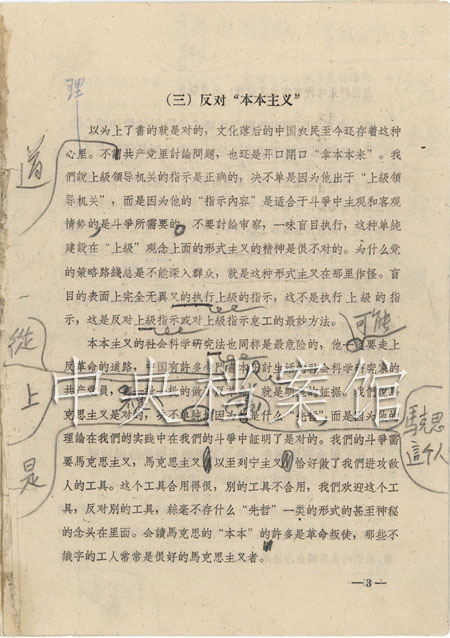 理
（三）反对“本本主义”
以为上了書的就是对的，文化落后的中国农民至今还存着这种
心里。不謂共产党里討論問題，也还是开口閉口“拿本本来”。我
們說上級領导机关的指示是正确的，决不单是因为他出于“上級領
导机关”，而是因为他的“指示內容”是适合于斗爭中主观和客观
情勢的是斗爭所需要的。不要討論审察，一味盲目执行，这种单純
建設在“上級”观念上面的形式主义的精神是很不对的。为什么党
的策略路綫总是不能深入群众，就是这种形式主义在那里作怪。盲
目的表面上完全无异义的执行上級的指示，这不是执行上級的指
示，这是反对上級指示或对上級指示怠工的最妙方法。
可能
本本主义的社会科学研究法也同样是最危险的，他要走上
反革命的道路，中国有許多討生活社会科学研究家的
共产党員，的做了就是明显的証据。我們說馬
克思主义是对的，决不单純因为是什么“先哲”而是因为他的
理論在我們的实践中在我們的斗爭中証明了是对的。我們的斗爭需
要馬克思主义，馬克思主义以至列宁主义恰好做了我們进攻敌
人的工具。这个工具合用得很，別的工具不合用，我們欢迎这个工
具，反对別的工具，絲毫不存什么“先哲”一类的形式的甚至神秘
的念头在里面。会讀馬克思的“本本”的許多是革命叛徒，那些不
識字的工人常常是很好的馬克思主义者。
道
從
上
是
馬克思
這个人
中央档案馆
—3—